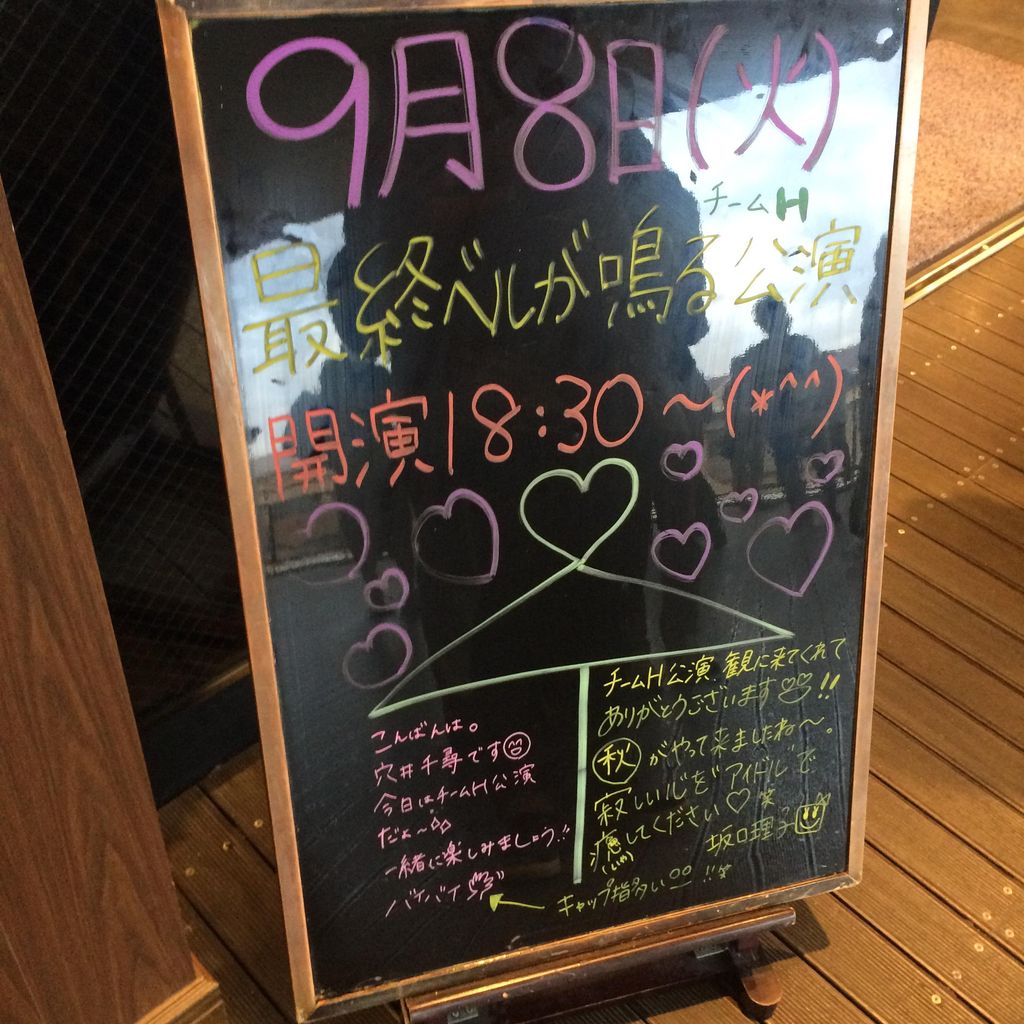 9月8日(火)
チームH
最終ベルが鳴る公演
開演18:30～(*^^)
こんばんは。
穴井千尋です
今日はチームH公演
だょ～
一緒に楽しみましょう!!
バイバイ
チームH公演、観に来てくれて
ありがとうございます♡♡!!
秋がやって来ましたね～。
寂しい心を"アイドル"で
癒してください♡笑
(いや)
坂口理子
キャップ指多い!!笑